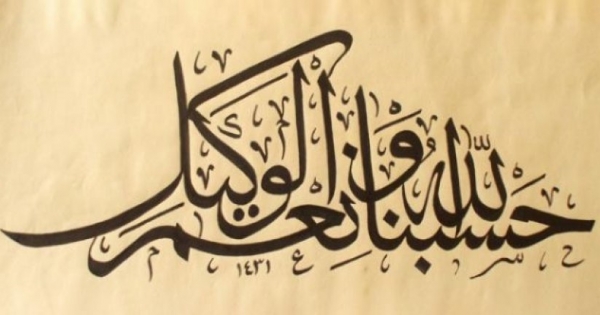 حَسْبُنَا اللّٰهُ وَنِعْمَ الْوَكِيلُ
١٤٣١